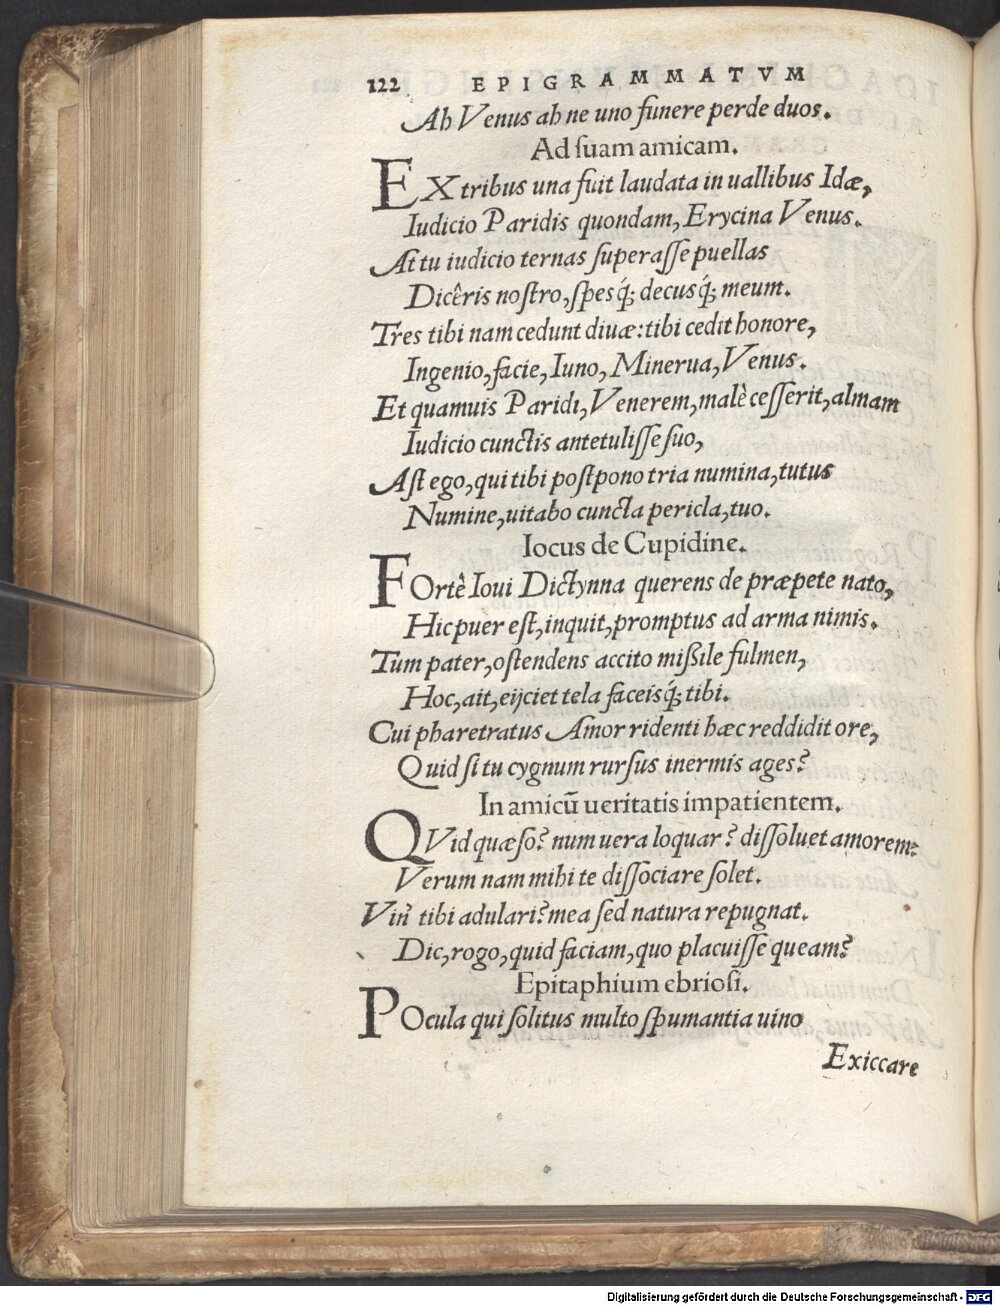 122 EPIGRAMMATVM
Ah Venus ah ne uno funere perde duos.
Ad suam amicam.
EX tribus una fuit laudata in uallibus Idæ,
Iudicio Paridis quondam, Erycina Venus.
At tu iudicio ternas superasse puellas
Dicêris nostro, spesq́; decusq́; meum.
Tres tibi nam cedunt diuæ: tibi cedit honore,
Ingenio, facie, Iuno, Minerua, Venus.
Et quamuis Paridi, Venerem, malè cesserit, almam
Iudicio cunctis antetulisse suo,
Ast ego, qui tibi postpono tria numina, tutus
Numine, uitabo cuncta pericla, tuo.
Iocus de Cupidine.
FOrtê Ioui Dictynna querens de præpete nato,
Hic puer est, inquit, promptus ad arma nimis.
Tum pater, ostendens accito mißile fulmen,
Hoc, ait, eijciet tela faceisq́; tibi.
Cui pharetratus Amor ridenti hæc reddidit ore,
Quid si tu cygnum rursus inermis ages?
In amicū ueritatis impatientem.
QVid quæso? num uera loquar? dissoluet amorem:
Verum nam mihi te dissociare solet.
Vin' tibi adulari? mea sed natura repugnat.
Dic, rogo, quid faciam, quo placuisse queam?
Epitaphium ebriosi.
POcula qui solitus multo spumantia uino
Exiccare
Digitalisierung gefördert durch die Deutsche Forschungsgemeinschaft - DFG